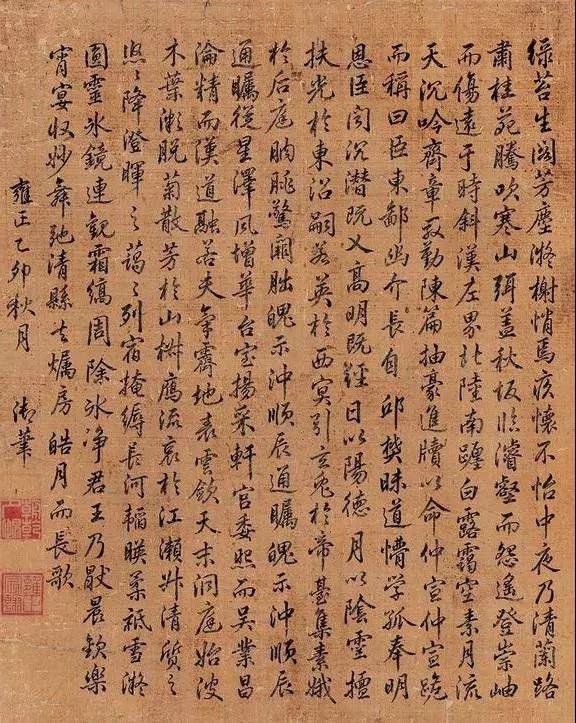 綠苔生閣芳塵凝榭悄焉疚懷不怡中夜乃清蘭路
肅桂苑騰吹寒山弭蓋秋坂臨濬壑而怨遙登崇岫
而傷遠于時斜漢左界北陸南躔白露靄空素月流
天沉吟齊章殷勤陳篇抽豪進牘以命仲宣仲宣跪
而稱曰臣東鄙幽介長自邱樊昧道懵學孤奉明
恩臣聞沉潛既乂高明既經日以陽德月以陰靈擅
扶光於東沼嗣若英於西冥引玄兔於帝臺集素娥
於后庭朒朓驚闕朏魄示沖順辰通矚魄示沖順辰
通矚從星澤風增華台室揚采軒宮委照而吳業昌
淪精而漢道融若夫氣霽地表雲斂天末洞庭始波
木葉漸脫菊散芳於山樹鴈流哀於江瀨升清質之
悠々降澄暉之藹々列宿掩縟長河韜暎柔祇雪凝
圓靈冰鏡連觀霜縞周除冰淨君王乃厭晨歡樂
宵宴收妙舞弛清縣去爥房皓月而長歌
雍正乙卯秋月 御筆